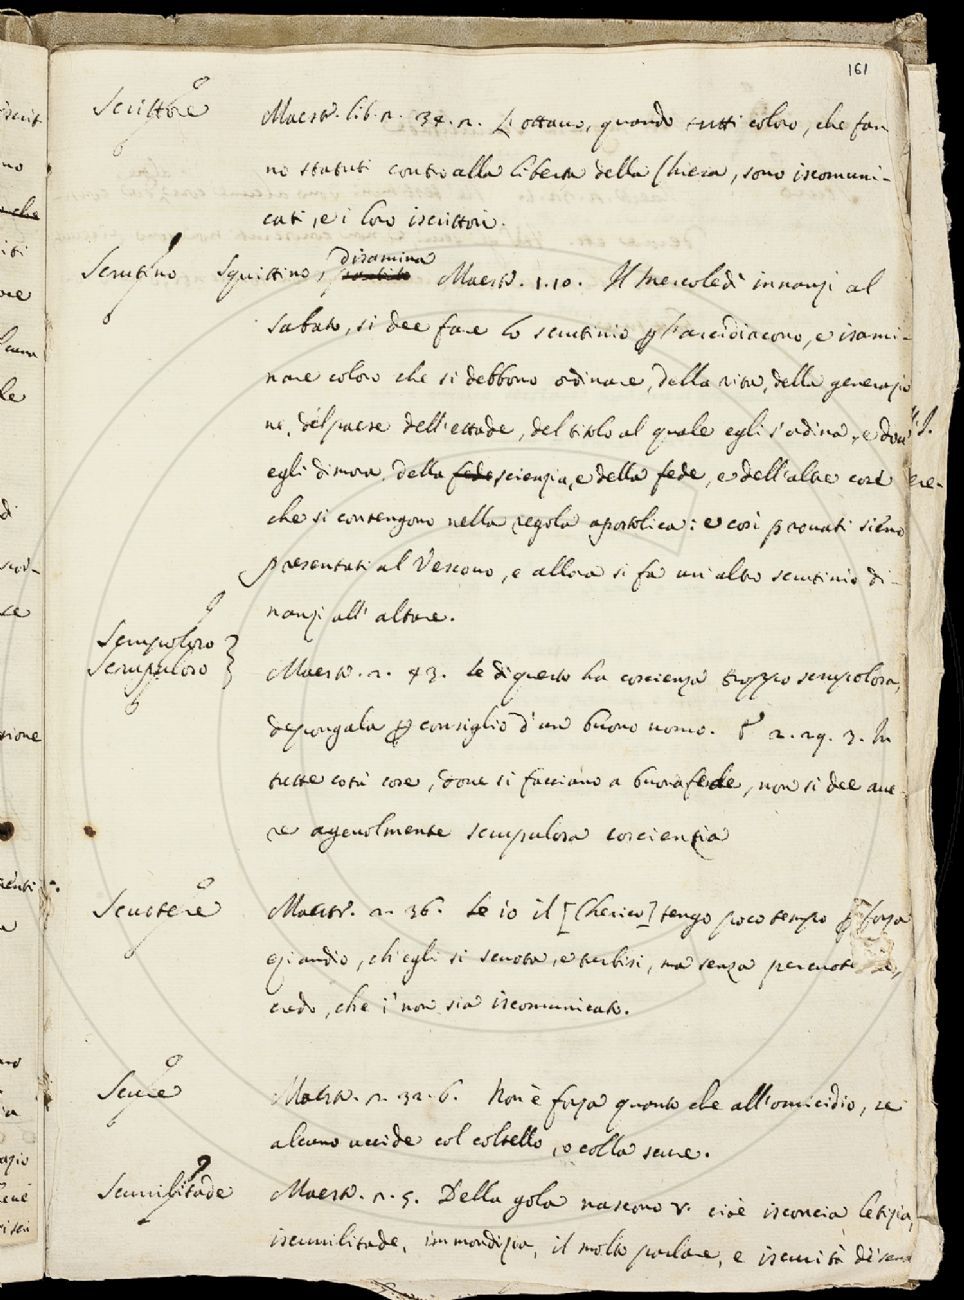 161
Scrittore Maestr. lib. 2. 34. 2. L'ottavo, quando tutti coloro, che fan-
no statuti contro alla libertà della Chiesa, sono iscomuni-
cati, e i loro iscrittori.
Scrutino Squittino, disamina Maestr. 1. 10. Il Mercoledì innanzi al
Sabato, si dee fare lo scrutinio p l'arcidiacono, e isami-
nare coloro che si debbono ordinare, della vita, della generazio
ne, del paese dell'etade, del titolo al quale egli s'ordina, e dove
egli dimora, della fede scienzia, e della fede, e dell'altre cose
che si contengono nella regola apostolica: e così provati sieno
presentati al Vescovo, e allora si fa un'altro scrutinio di-
nanzi all'altare.
Scrupoloso
Scrupuloso Maestr. 2. 43. Se di questo ha coscienza troppo scrupolosa,
depongala p consiglio d'un buono uomo. E 2. 29. 3. In
tutte cotà cose, dove si facciano a buona fede, non si dee ave-
re agevolmente scrupulosa coscienzia
Scuotere Maestr. 2. 36. Se io il [Cherico] tengo poco tempo p forza
eziandio, ch'egli si scuota, e turbisi, ma senza percuote
credo, che i' non sia iscomunicato.
Scure Maestr. 2. 32. 6. Non è forza quanto che all'omicidio, se
alcuno uccide col coltello, o colla scure.
Scurrilitade Maestr. 2. 5. Della gola nascono v. cioè isconcia letizia,
iscurrilitade, immondizia, il molto parlare, e iscurità di